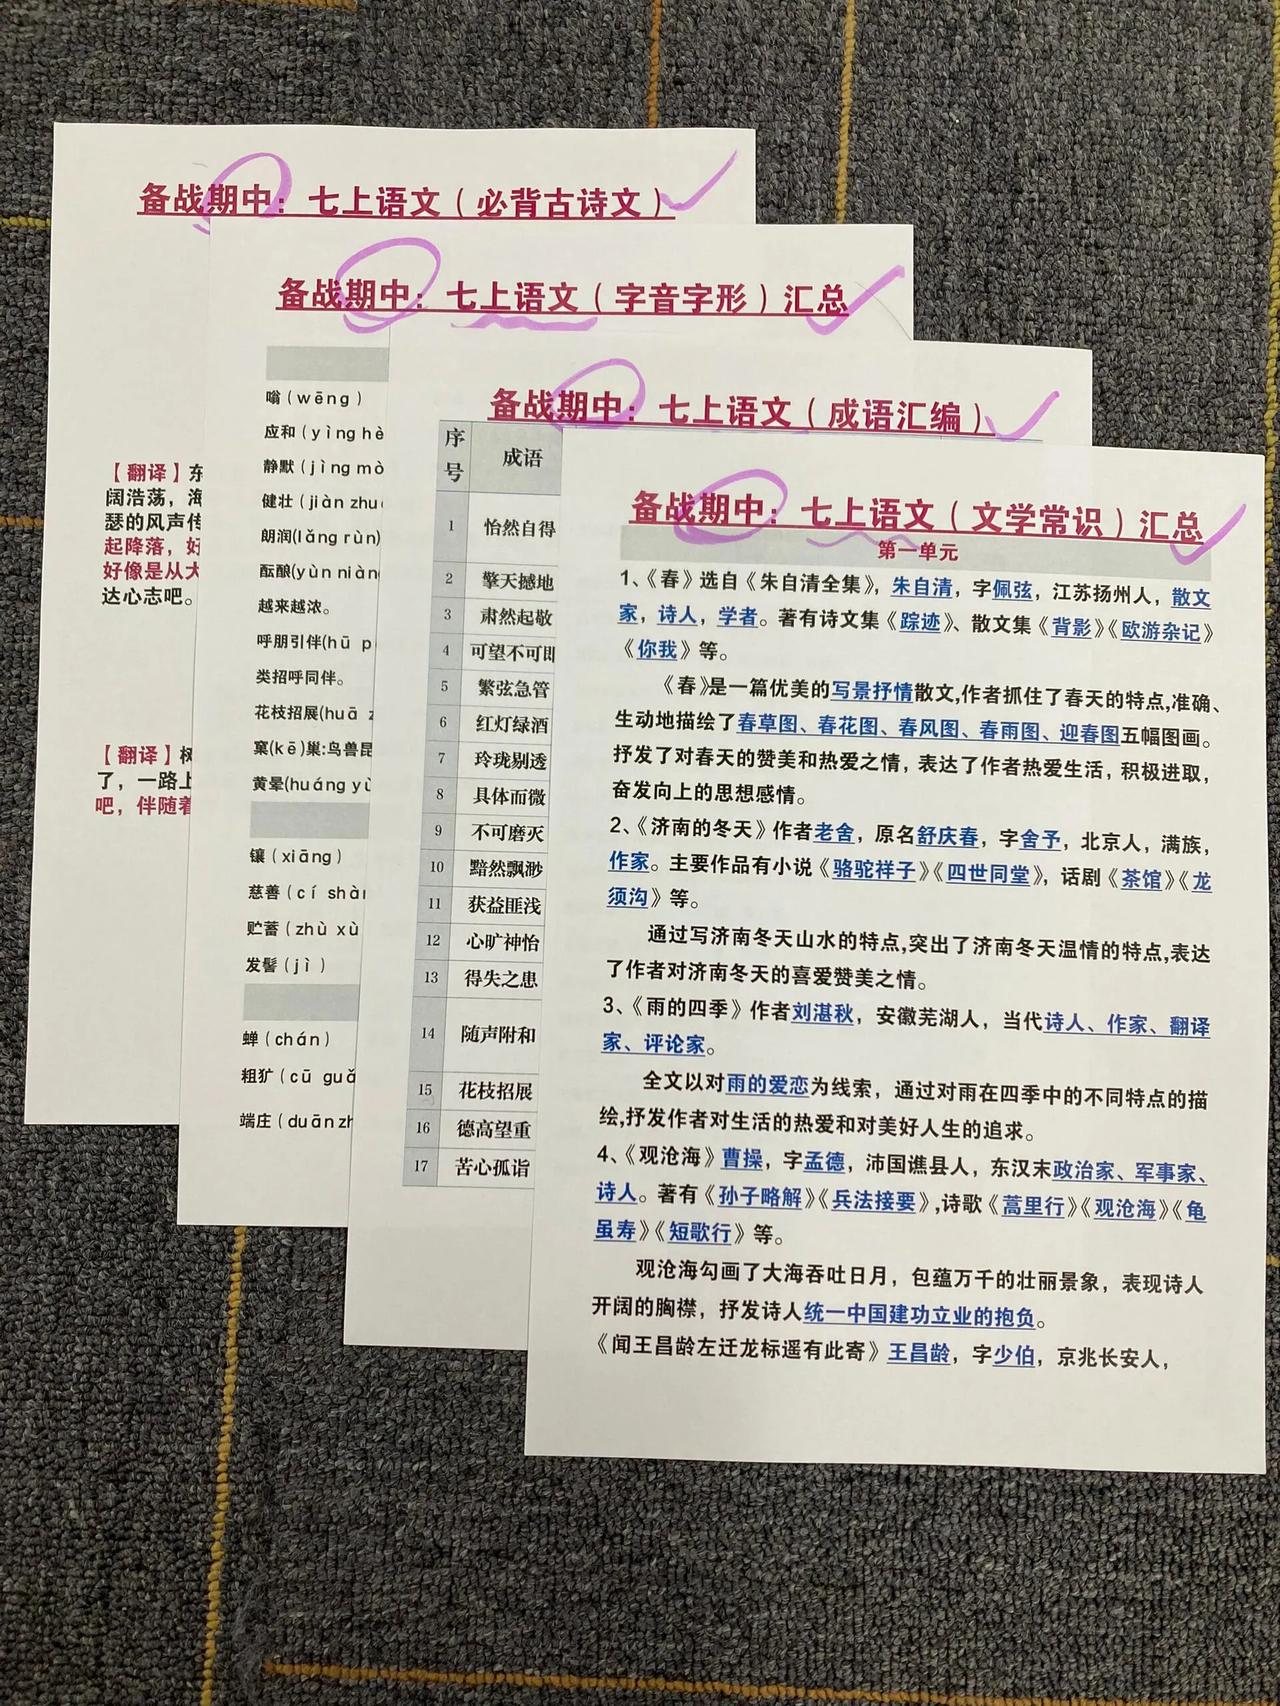 备战期中：七上语文（必背古诗文）
【翻译】东
阔浩荡，海
瑟的风声传
起降落，好
好像是从大
达心志吧。
【翻译】树
了，一路上
吧，伴随着
备战期中：七上语文（字音字形）汇总
嗡（wēng）
应和（yìng hè
静默（jìng mò
健壮（jiàn zhu
朗润(lǎng rùn)
酝酿(yùn niàn
越来越浓。
呼朋引伴(hū p
类招呼同伴。
花枝招展(huā z
窠(kē)巢:鸟兽昆
黄晕(huáng yù
镶（xiāng）
慈善（cí shàn
贮蓄（zhù xù
发髻（jì）
蝉（chán）
粗犷（cū guǎ
端庄（duān zh
备战期中：七上语文（成语汇编）
序号 成语
1 怡然自得
2 擎天撼地
3 肃然起敬
4 可望不可即
5 繁弦急管
6 红灯绿酒
7 玲珑剔透
8 具体而微
9 不可磨灭
10 黯然飘渺
11 获益匪浅
12 心旷神怡
13 得失之患
14 随声附和
15 花枝招展
16 德高望重
17 苦心孤诣
备战期中：七上语文（文学常识）汇总
第一单元
1、《春》选自《朱自清全集》，朱自清，字佩弦，江苏扬州人，散文
家，诗人，学者。著有诗文集《踪迹》、散文集《背影》《欧游杂记》
《你我》等。
《春》是一篇优美的写景抒情散文,作者抓住了春天的特点,准确、
生动地描绘了春草图、春花图、春风图、春雨图、迎春图五幅图画。
抒发了对春天的赞美和热爱之情，表达了作者热爱生活，积极进取，
奋发向上的思想感情。
2、《济南的冬天》作者老舍，原名舒庆春，字舍予，北京人，满族，
作家。主要作品有小说《骆驼祥子》《四世同堂》，话剧《茶馆》《龙
须沟》等。
通过写济南冬天山水的特点,突出了济南冬天温情的特点,表达
了作者对济南冬天的喜爱赞美之情。
3、《雨的四季》作者刘湛秋，安徽芜湖人，当代诗人、作家、翻译
家、评论家。
全文以对雨的爱恋为线索，通过对雨在四季中的不同特点的描
绘,抒发作者对生活的热爱和对美好人生的追求。
4、《观沧海》曹操，字孟德，沛国谯县人，东汉末政治家、军事家、
诗人。著有《孙子略解》《兵法接要》,诗歌《蒿里行》《观沧海》《龟
虽寿》《短歌行》等。
观沧海勾画了大海吞吐日月，包蕴万千的壮丽景象，表现诗人
开阔的胸襟，抒发诗人统一中国建功立业的抱负。
《闻王昌龄左迁龙标遥有此寄》王昌龄，字少伯，京兆长安人，